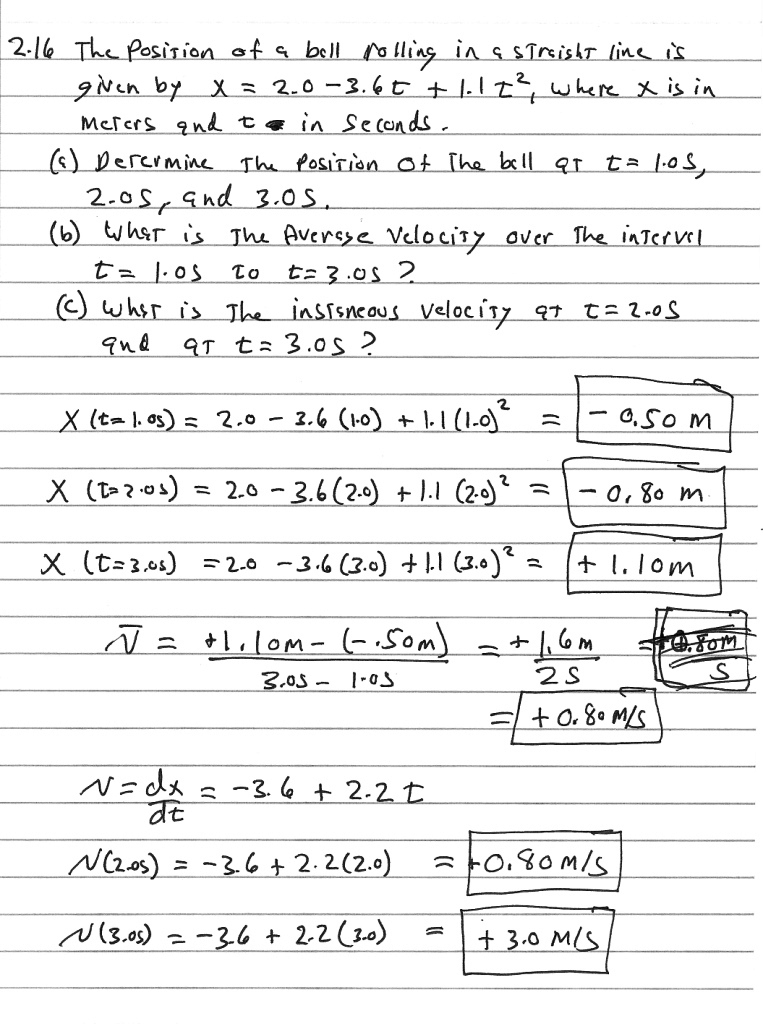 2.16 The Position of a ball rolling in a straight line is
given by x = 2.0 - 3.6t + 1.1t², where x is in
meters and t in seconds.
(a) Determine The Position of The ball at t = 1.0s,
2.0s, and 3.0s.
(b) What is The Average Velocity over The interval
t = 1.0s to t = 3.0s ?
(c) What is The instaneous Velocity at t = 2.0s
and at t = 3.0s ?
X (t=1.0s) = 2.0 - 3.6 (1.0) + 1.1 (1.0)² = - 0.50 m
X (t=2.0s) = 2.0 - 3.6 (2.0) + 1.1 (2.0)² = - 0.80 m
X (t=3.0s) = 2.0 - 3.6 (3.0) + 1.1 (3.0)² = + 1.10m
v̄ = +1.10m - (-.50m) = + 1.6m = +0.80m
3.0s - 1.0s 2s s
= + 0.80 m/s
v = dx = -3.6 + 2.2t
dt
v(2.0s) = -3.6 + 2.2(2.0) = +0.80 m/s
v(3.0s) = -3.6 + 2.2(3.0) = + 3.0 m/s